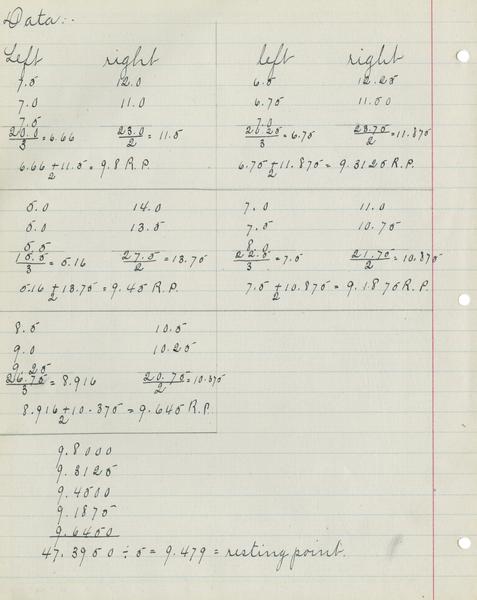 Data:-
Left right left right
7.5 12.0 6.5 12.25
7.0 11.0 6.75 11.50
7.5 7.0
20.0/3 = 6.66 23.0/2 = 11.5 20.25/3 = 6.75 23.75/2 = 11.875
6.66 + 11.5 = 9.8 R.P. 6.75 + 11.875 = 9.3125 R.P.
2 2
5.0 14.0 7.0 11.0
5.0 13.5 7.5 10.75
5.5 8.0
15.5/3 = 5.16 27.5/2 = 13.75 22.5/3 = 7.5 21.75/2 = 10.875
5.16 + 13.75 = 9.45 R.P. 7.5 + 10.875 = 9.1875 R.P.
2 2
8.5 10.5
9.0 10.25
9.25
26.75/3 = 8.916 20.75/2 = 10.375
8.916 + 10.375 = 9.645 R.P.
2
9.8000
9.3125
9.4500
9.1875
9.6450
47.3950 ÷ 5 = 9.479 = resting point.